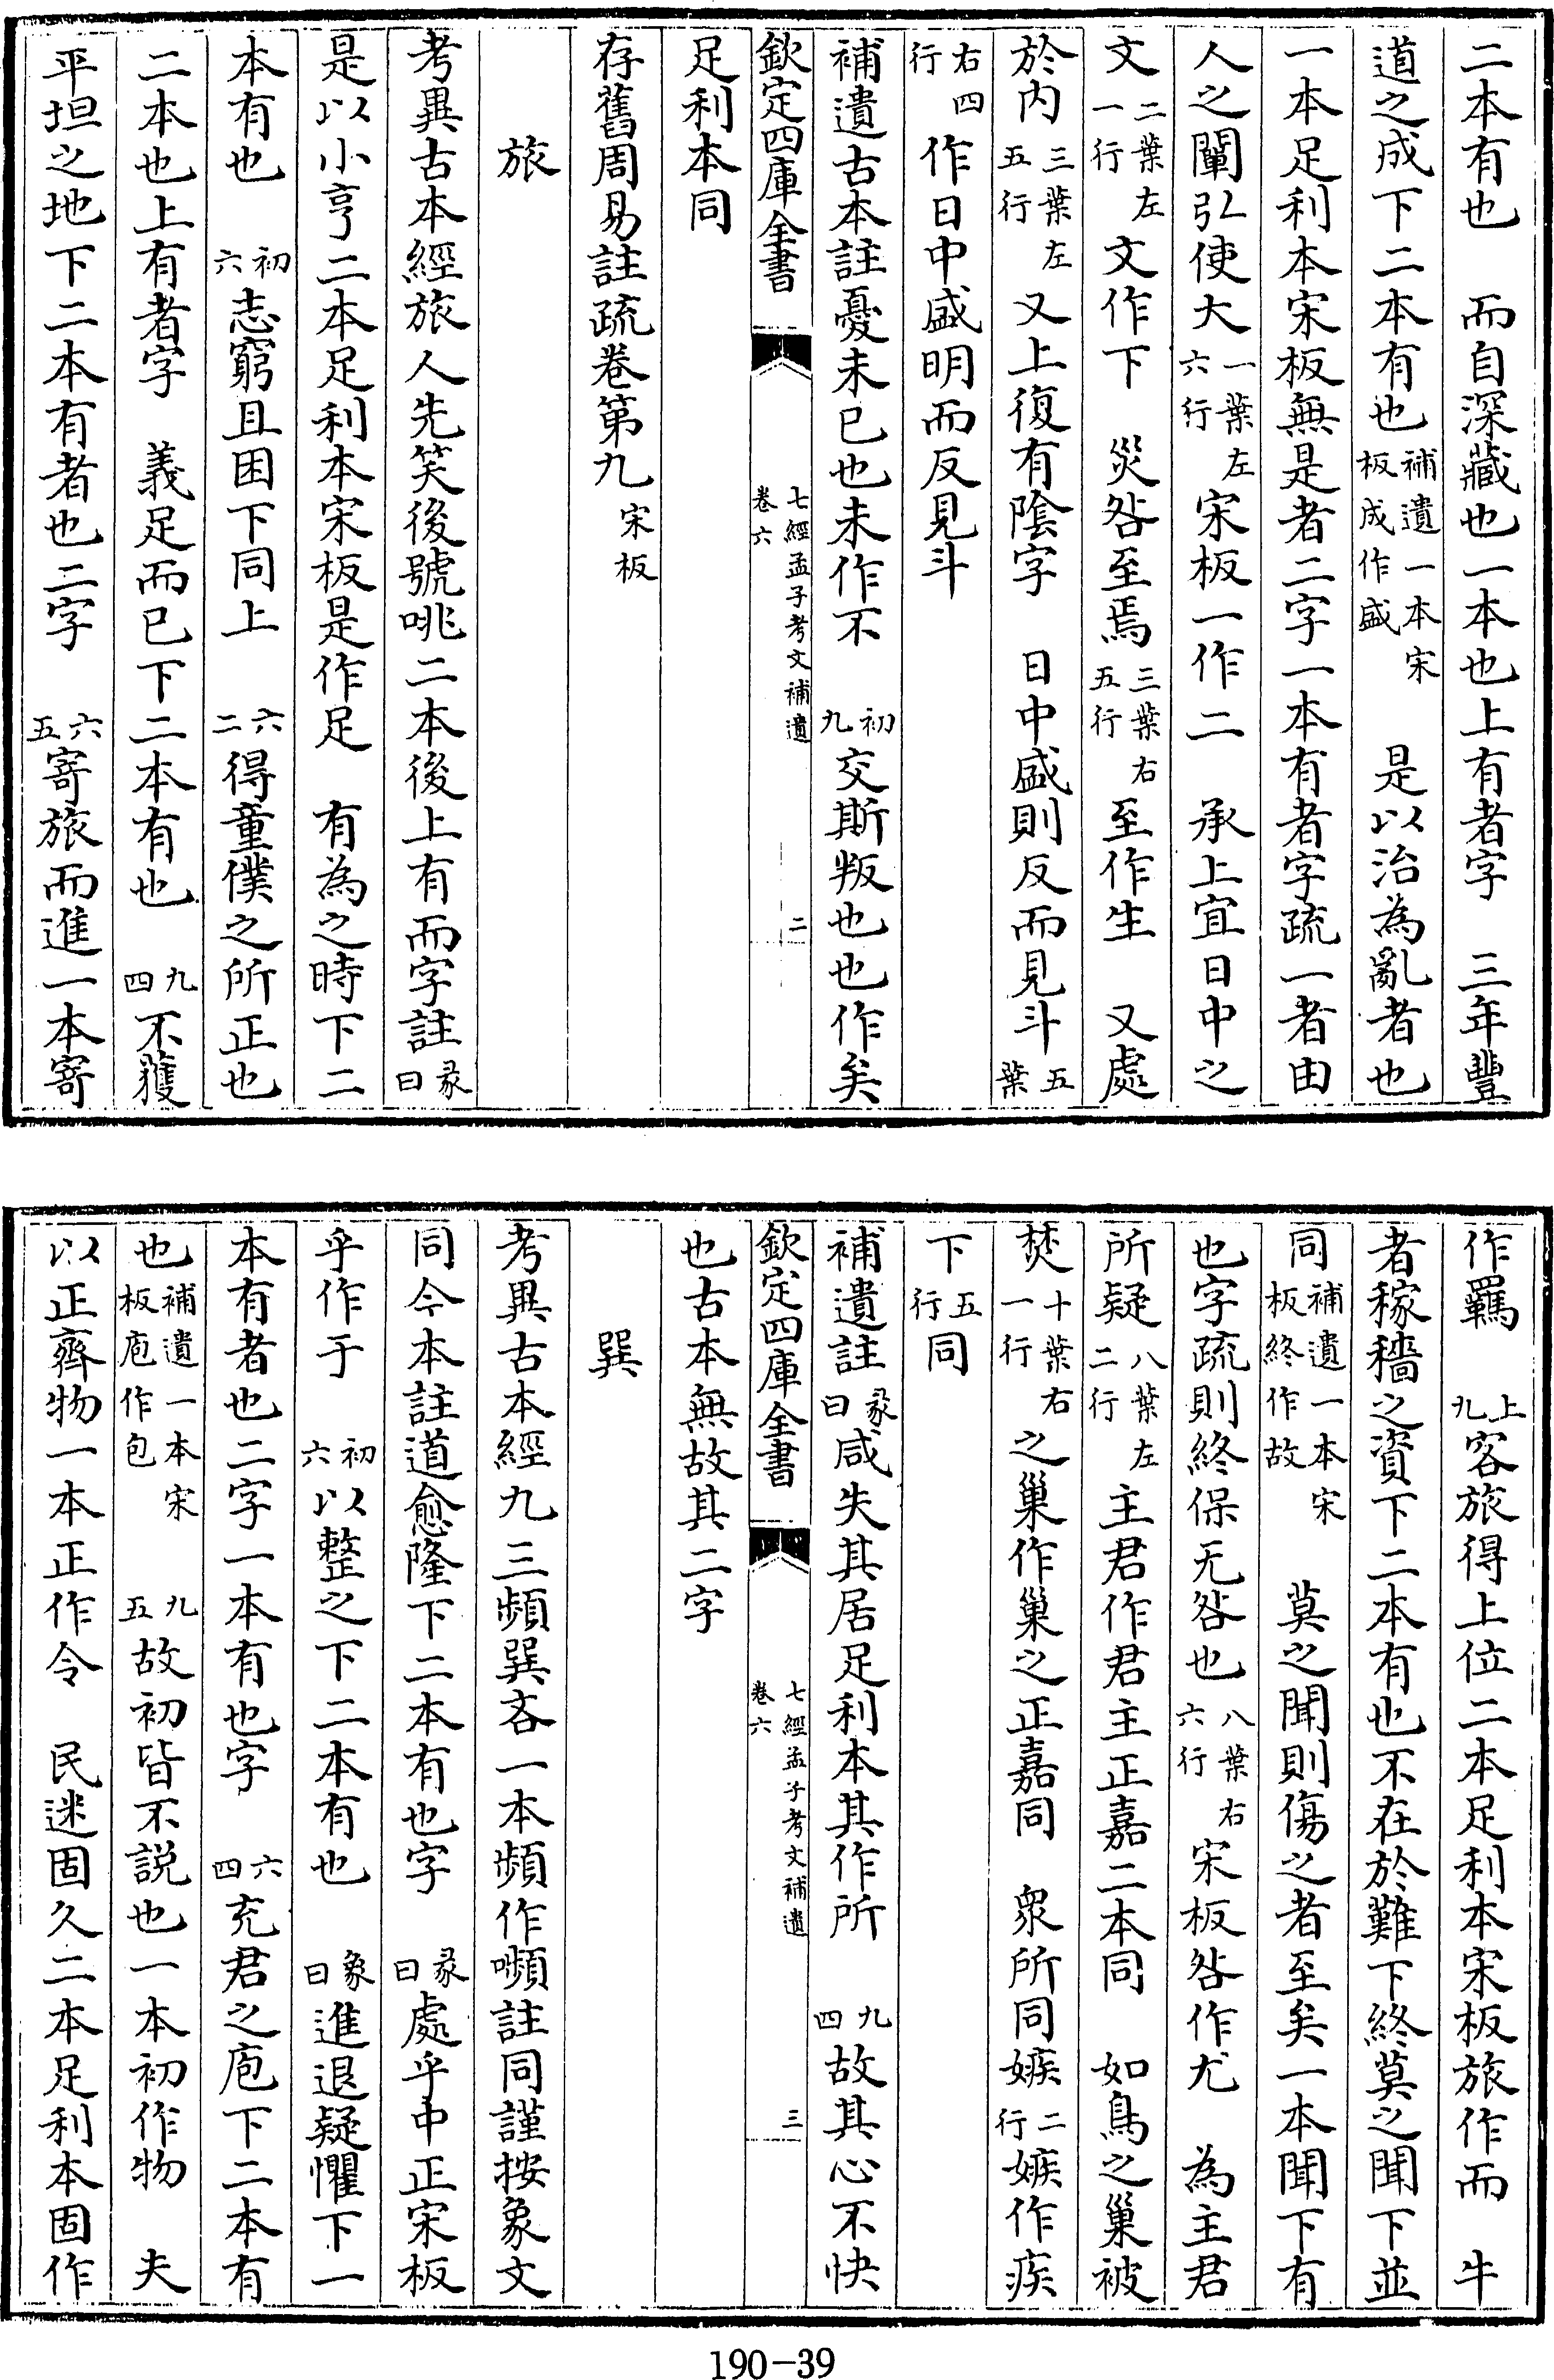 二本有也　而自深藏也一本也上有者字　三年豐
道之成下二本有也補遺一本宋板成作盛　是以治為亂者也
一本足利本宋板無是者二字一本有者字疏一者由
人之闡弘使大一葉左六行宋板一作二　承上宜日中之
文二葉左一行文作下　災咎至焉三葉右五行至作生　又處
於內三葉左五行又上復有陰字　日中盛則反而見斗五葉
右四行作日中盛明而反見斗
補遺古本註憂未已也未作不　初九交斯叛也也作矣
欽定四庫全書　七經孟子考文補遺卷六　二
足利本同
存舊周易註疏卷第九宋板
旅
考異古本經旅人先笑後號咷二本後上有而字註彖曰
是以小亨二本足利本宋板是作足　有為之時下二
本有也　初六志窮且困下同上　六二得童僕之所正也
二本也上有者字　義足而已下二本有也　九四不獲
平坦之地下二本有者也二字　六五寄旅而進一本寄
作羈　上九客旅得上位二本足利本宋板旅作而　牛
者稼穡之資下二本有也不在於難下終莫之聞下並
同補遺一本宋板終作故　莫之聞則傷之者至矣一本聞下有
也字疏則終保无咎也八葉右六行宋板咎作尤　為主君
所疑八葉左二行主君作君主正嘉二本同　如鳥之巢被
焚十葉右一行之巢作巢之正嘉同　衆所同嫉二行嫉作疾
下五行同
補遺註彖曰咸失其居足利本其作所　九四故其心不快
欽定四庫全書　七經孟子考文補遺卷六　三
也古本無故其二字
巽
考異古本經九三頻巽吝一本頻作嚬註同謹按象文
同今本註道愈隆下二本有也字　彖曰處乎中正宋板
乎作于　初六以整之下二本有也　象曰進退疑懼下一
本有者也二字一本有也字　六四充君之庖下二本有
也補遺一本宋板庖作包　九五故初皆不説也一本初作物　夫
以正齊物一本正作令　民迷固久二本足利本固作
190-39